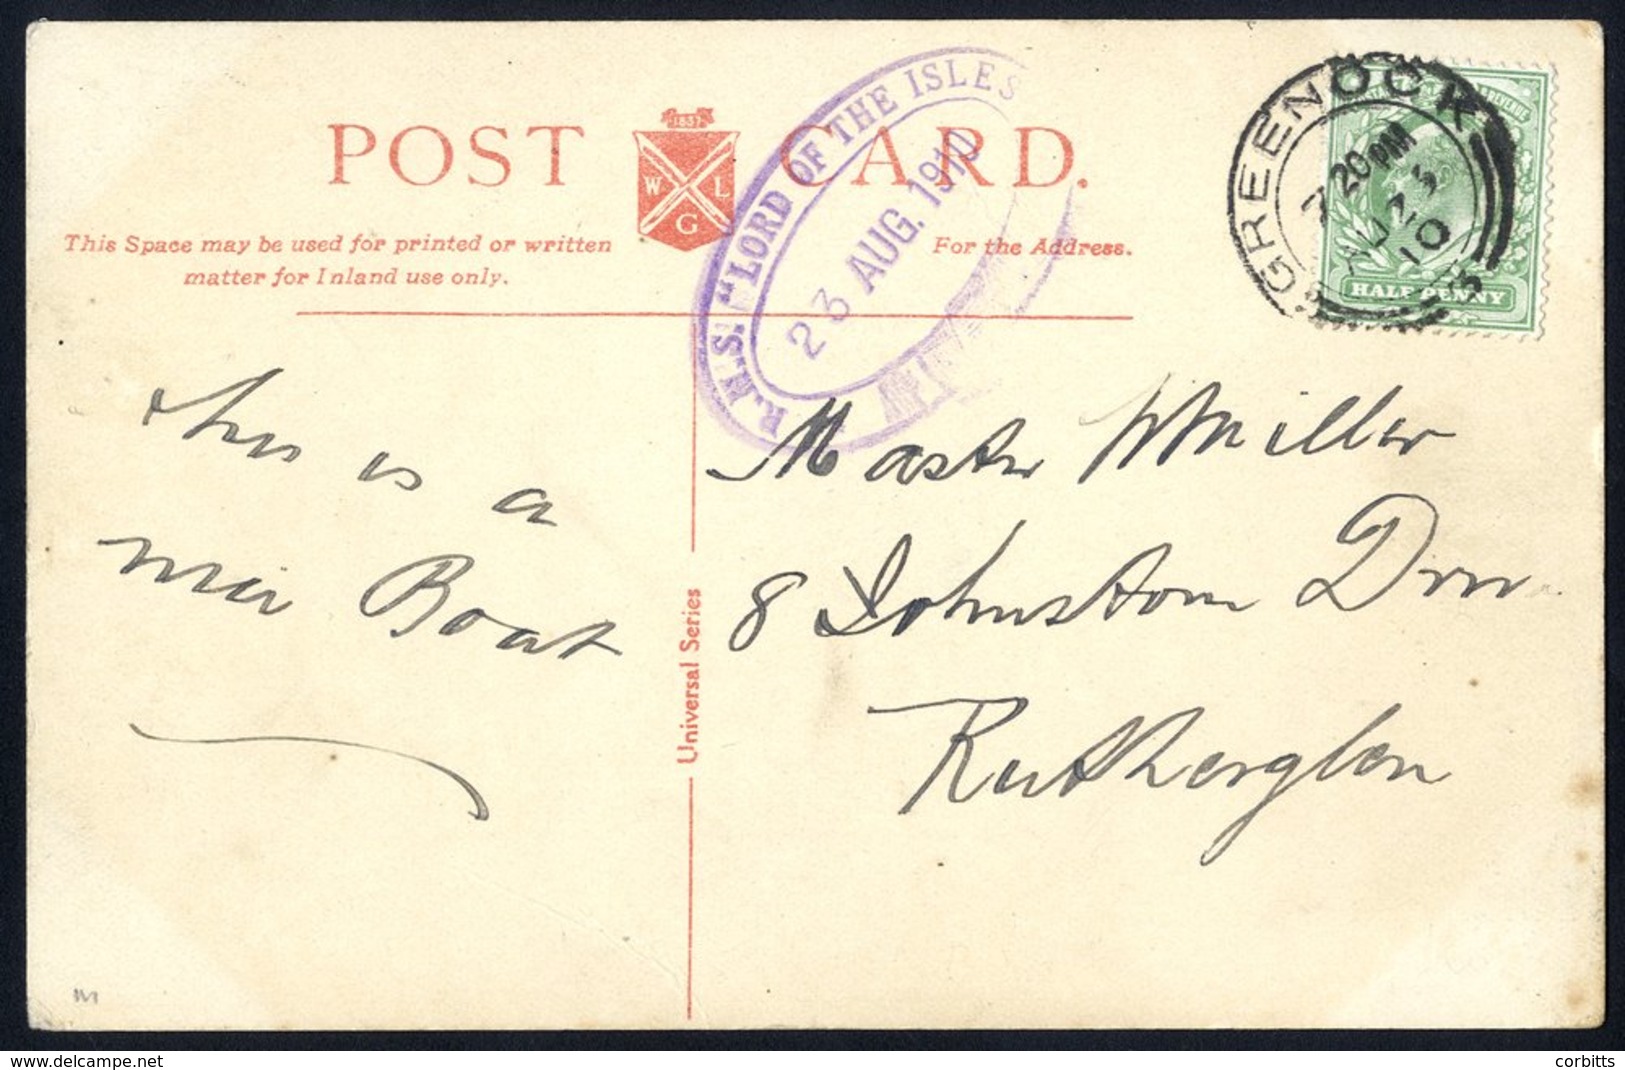 POST CARD.
1837
W L
G
This Space may be used for printed or written
matter for Inland use only.
For the Address.
R.M.S. "LORD OF THE ISLES
23 AUG. 1910
GREENOCK
7 20 PM
AU 23
10
REVENUE
HALF PENNY
this is a
nice Boat
Master W Miller
8 Johnstone Drive
Rutherglen
Universal Series
www.delcampe.net
corbitts